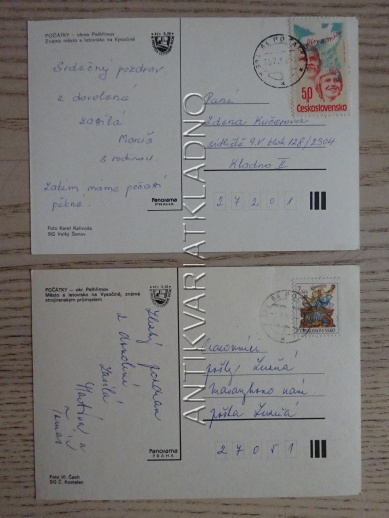 POČÁTKY – okres Pelhřimov
Známé město a letovisko na Vysočině
Srdečný pozdrav
z dovolené
zasílá
Maruš
s rodinou.
Zatím máme počasí
pěkné.
Foto Karel Kalivoda
SIG Velký Šenov
Panorama
PRAHA
50
Československo
Paní
Zdena Kučerová
sídliště 9.V blok 128/2504
Kladno II
27201
ANTIKVARIATKLADNO
POČÁTKY – okr. Pelhřimov
Město a letovisko na Vysočině, známé
strojírenským průmyslem
z dovolené
zasílá
Martina a
Tomáš
Foto Vl. Čech
SIG Č. Kostelec
Panorama
PRAHA
ČESKOSLOVENSKO
pracovnici
pošty Lužná
Masarykovo nám
pošta Lužná
27051